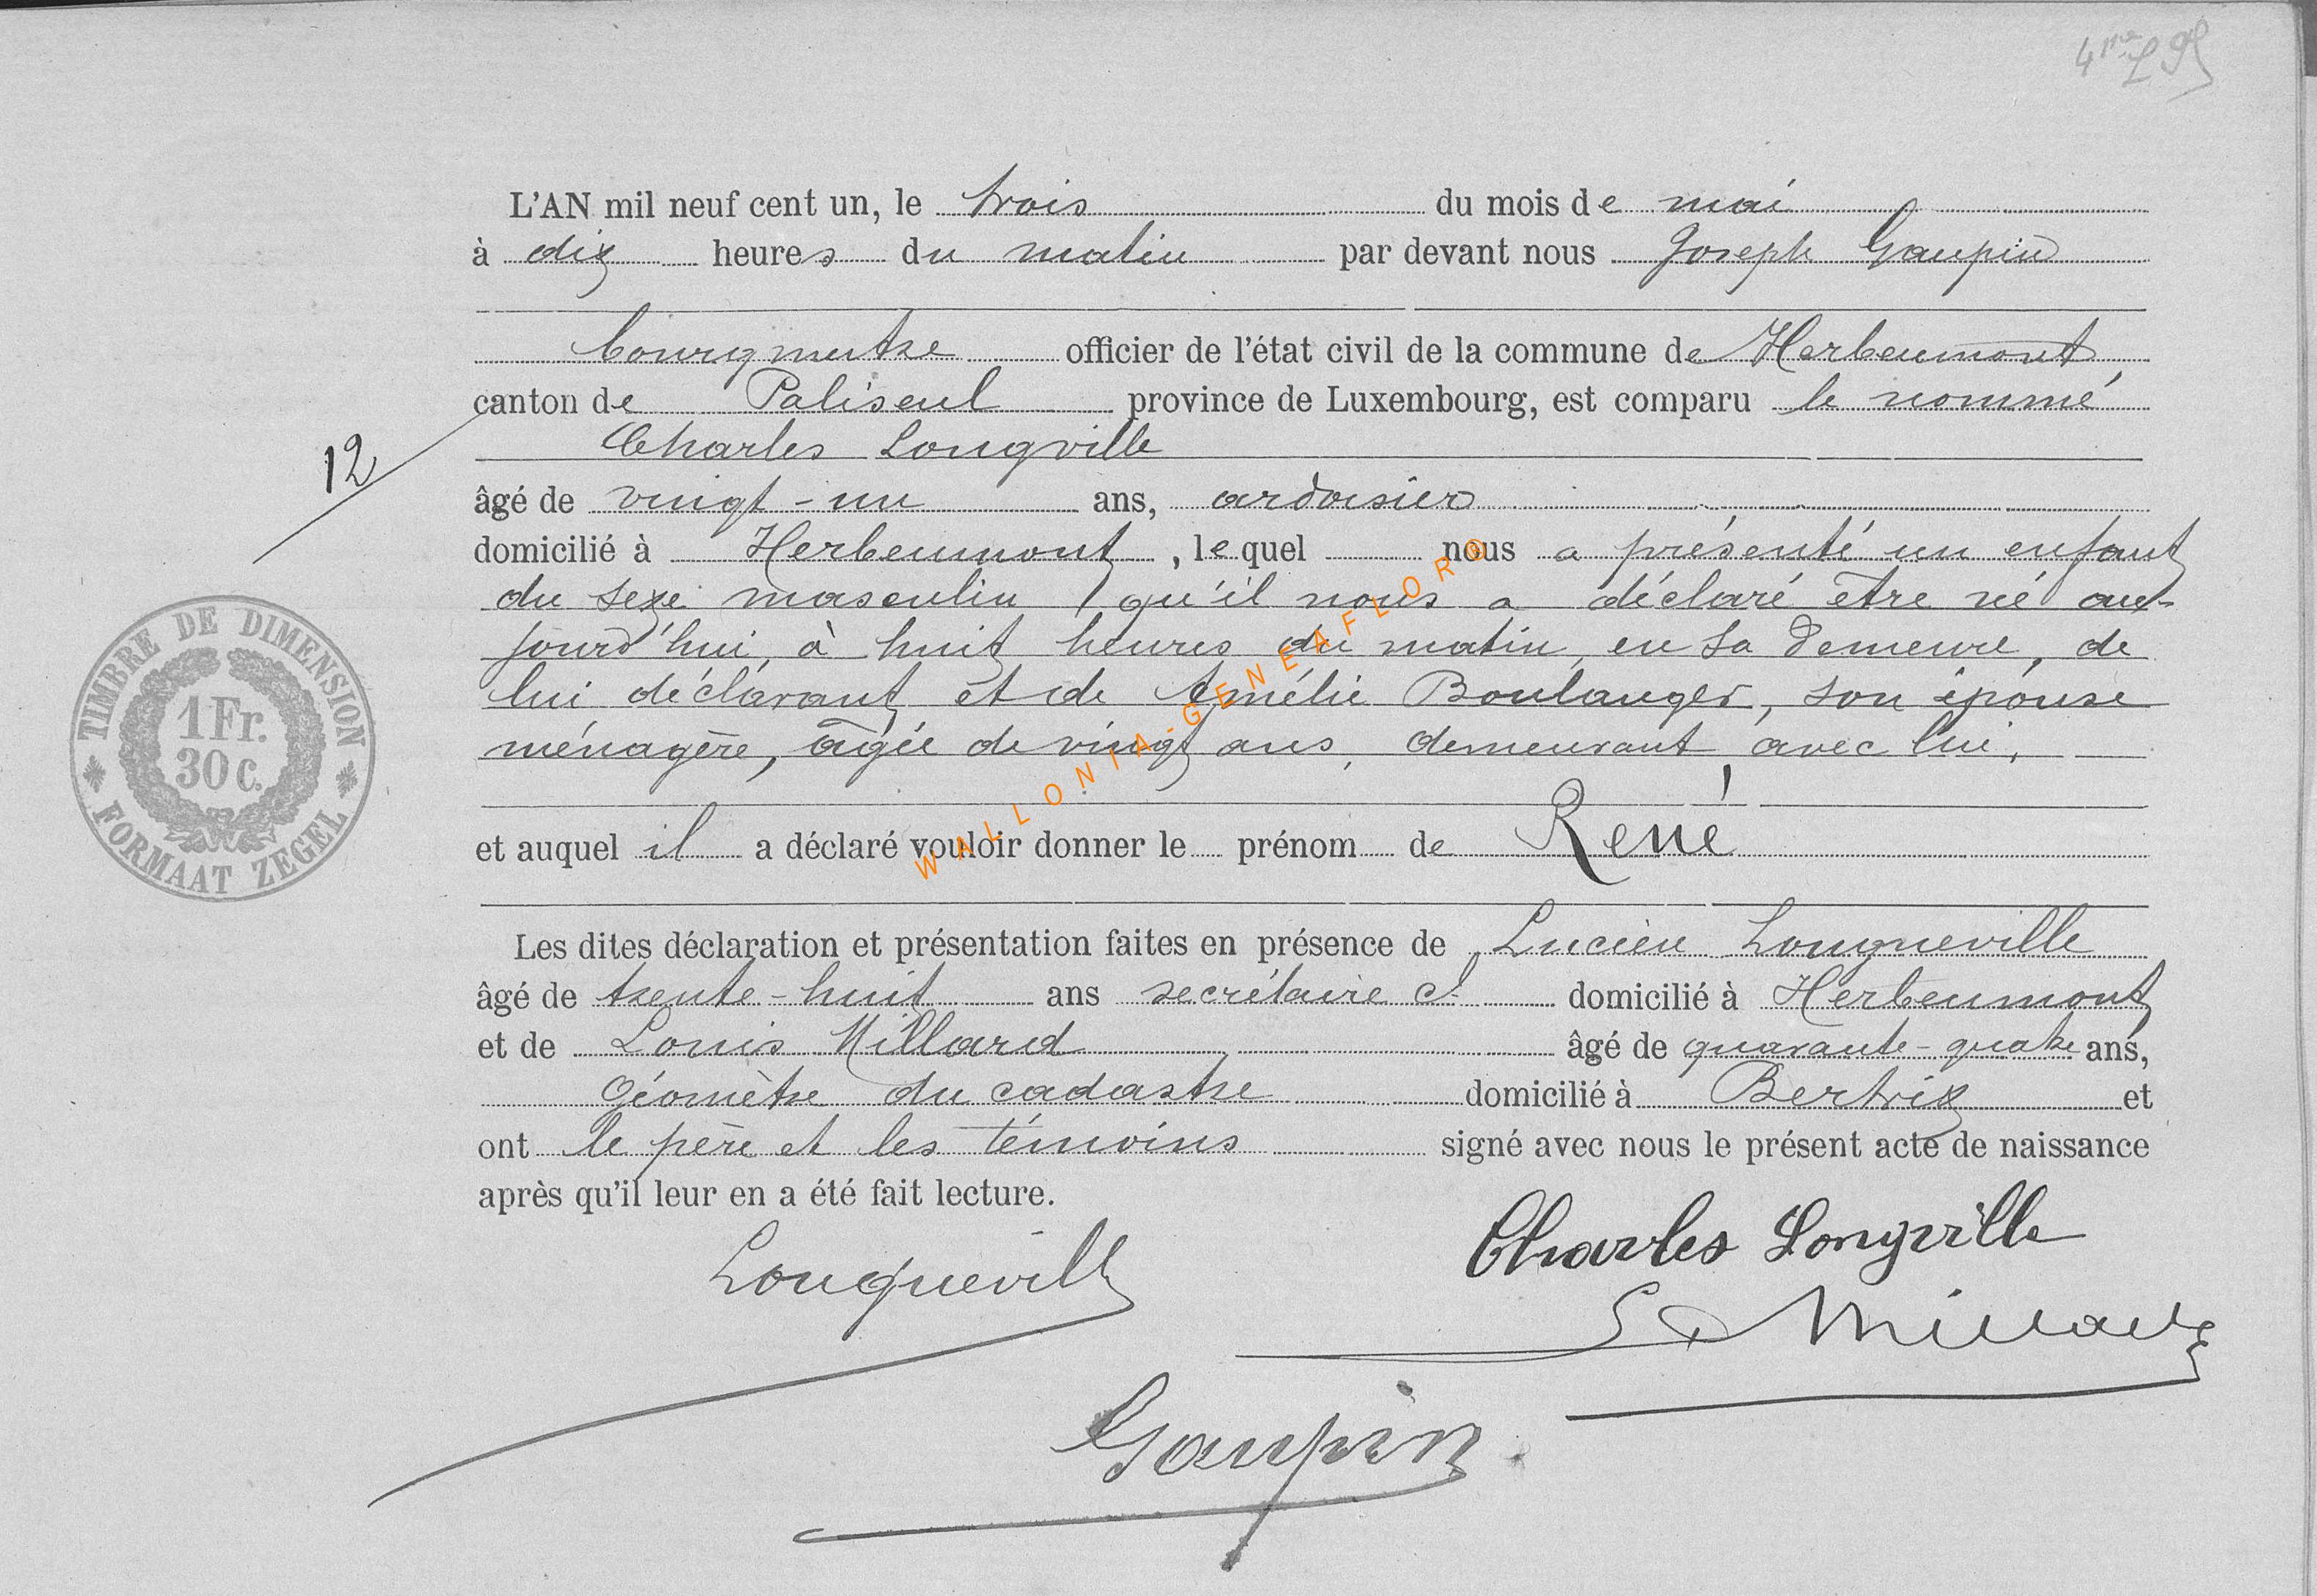 L'AN mil neuf cent un, le trois du mois de mai
à dix heures du matin par devant nous Joseph Gaupin
bourgmestre officier de l'état civil de la commune de Herbeumont
canton de Paliseul province de Luxembourg, est comparu le nommé
Charles Longville
12
âgé de vingt-un ans, ardoisier
domicilié à Herbeumont, lequel nous a présenté un enfant
du sexe masculin, qu'il nous a déclaré être né au-
jourd'hui, à huit heures du matin, en sa demeure, de
lui déclarant et de Amélie Boulanger, son épouse
ménagère, âgée de vingt ans, demeurant avec lui,
et auquel il a déclaré vouloir donner le prénom de René
Les dites déclaration et présentation faites en présence de Lucien Longueville
âgé de trente-huit ans secrétaire cl domicilié à Herbeumont
et de Louis Millard âgé de quarante-quatre ans,
Géomètre du cadastre domicilié à Bertrix et
ont le père et les témoins signé avec nous le présent acte de naissance
après qu'il leur en a été fait lecture.
Charles Longville
Longueville
Millard
Gaupin
TIMBRE DE DIMENSION
1 Fr.
30 C.
FORMAAT ZEGEL
WALLONIA-GENEAFLORE